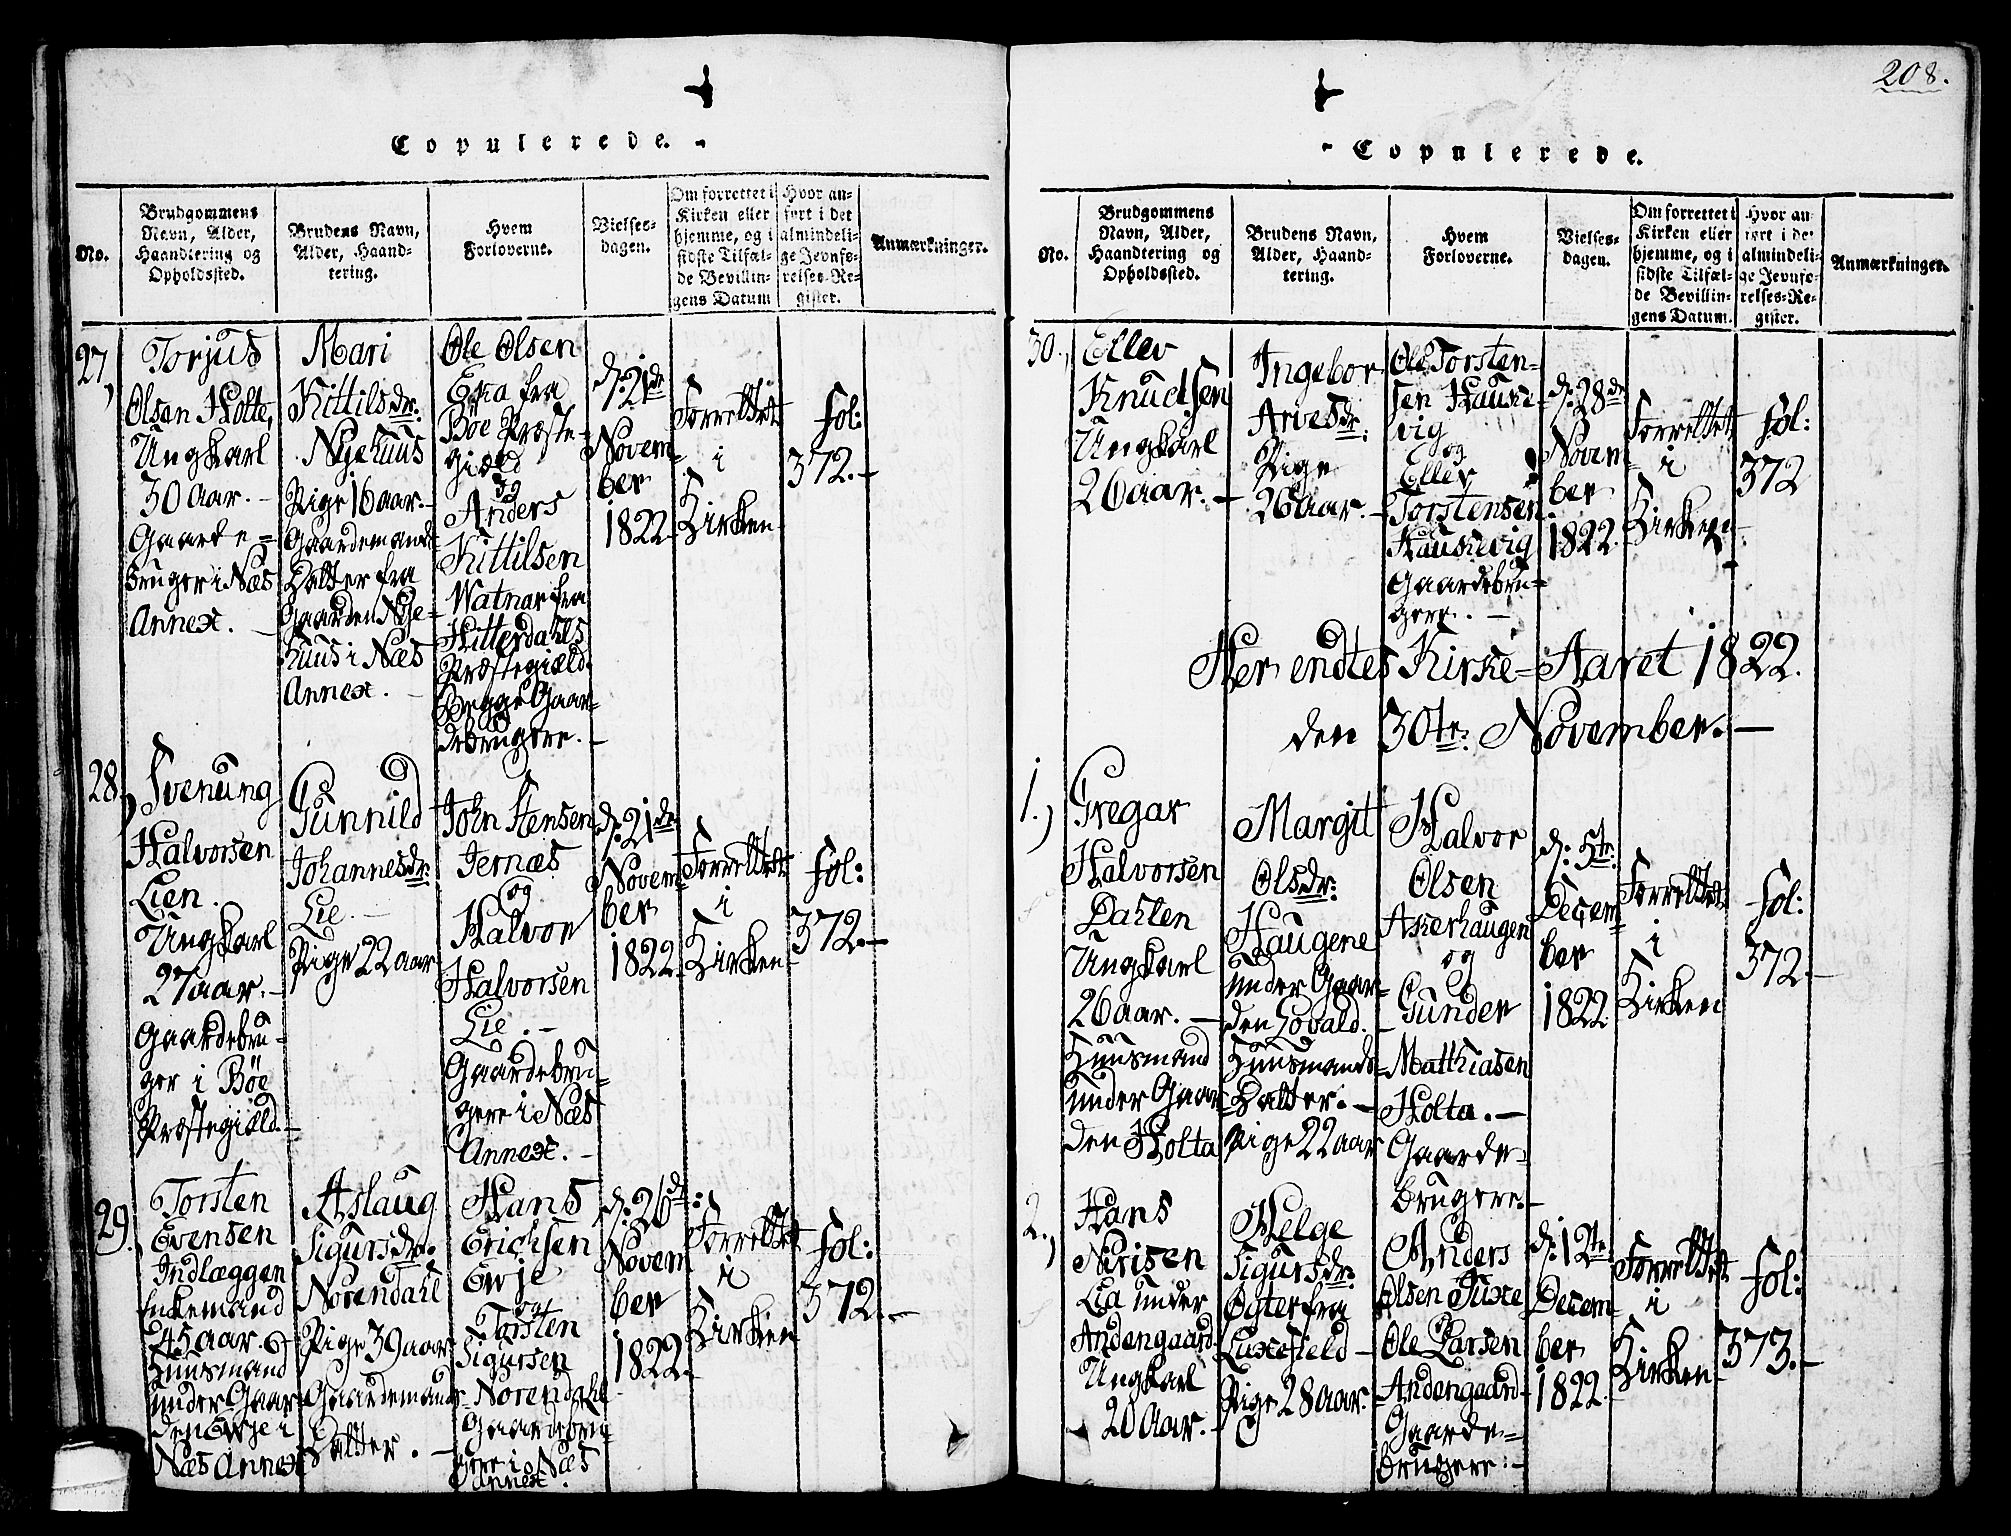 208.
Copulerede.
No.
Brudgommens Navn, Alder, Haandtering og Opholdssted.
Brudens Navn, Alder, Haandtering.
Hvem Forloverne.
Vielsesdagen.
Om forrettet i Kirken eller hjemme, og i sidste Tilfælde Bevillingens Datum
Hvor anført i det almindelige Jevnførelses-Register.
Anmærkninger.
27,
Torjus
Olsen Holte,
Ungkarl
30 Aar. -
Gaarde=
bruger i Næs
Annex. -
Mari
Kittilsdr:
Nyehuus
Pige 16 aar. -
Gaardemands
Datter fra
Gaarden Nye=
huus i Næs
Annex. -
Ole Olsen
Eika fra
Bøe Præste-
gield
og
Anders
Kittilsen
Watnar fra
Hitterdahls
Præstegield.
Begge Gaar=
debrugere. -
d: 21de
Novem=
ber
1822.
Forrettet
i
Kirken
fol:
372. -
28,
Svenung
Halvorsen
Lien.
Ungkarl
27 aar. -
Gaardebru-
ger i Bøe
Præstegield. -
Gunnild
Johannesdr:
Lie. -
Pige 22 aar
John Stensen
Jernæs
og
Halvor
Halvorsen
Lie. -
Gaardebru-
gere i Næs
Annex. -
d: 21de
Novem=
ber
1822.
Forrettet
i
Kirken
fol:
372. -
29.
Torsten
Evensen
Indlæggen
Enkemand
45 aar. -
Huusmand
under Gaar
den Evje i
Næs Annex
Aslaug
Sigursdr:
Norendahl
Pige 39 aar
Gaardemands
Datter. -
Hans
Erichsen
Evje
og
Torsten
Sigursen
Norendahl
Gaardebru-
gere i Næs
Annex.
d: 26de
Novem
ber
1822.
Forrettet
i
Kirken
fol:
372. -
Copulerede.
No.
Brudgommens Navn, Alder, Haandtering og Opholdssted.
Brudens Navn, Alder, Haandtering.
Hvem Forloverne.
Vielsesdagen.
Om forrettet i Kirken eller hjemme, og i sidste Tilfælde Bevillingens Datum.
Hvor anført i det almindelige Jevnførelses-Register.
Anmærkninger.
30.,
Ellev
Knudsen
Ungkarl
26 aar. -
Ingebor
Arvesdr:
Pige
26 aar. -
Ole Torsten=
sen Haukevig
og
Ellev
Torstensen
Haukevig
Gaardebru=
gere. -
d: 28de
Novem
ber
1822.
Forrettet
i
Kirken
fol:
372
Her endtes Kirke-Aaret 1822.
den 30te: November. -
1.,
Gregar
Halvorsen
Dahlen
Ungkarl
26 aar. -
Huusmand
under Gaar
den Holta
Margit
Olsdr:
Haugene
under Gaar=
den Govald. -
Huusmands=
Datter. -
Pige 22 aar
Halvor
Olsen
Akerhaugen
og
Gunder
Matthiasen
Holta. -
Gaarde=
brugere. -
d: 5te:
Decem
ber
1822
Forrettet
i
Kirken
fol:
372. -
2.,
Hans
Nirisen
Lia under
Andengaard
Ungkarl
20 Aar. -
Helge
Sigursdr:
Øster fra
Luxefield -
Pige 28 aar.
Anders
Olsen Tuxe
og
Ole Larsen
Andengaard
Gaarde=
brugere: -
d: 12te
Decem
ber
1822.
Forrettet
i
Kirken
fol:
373. -